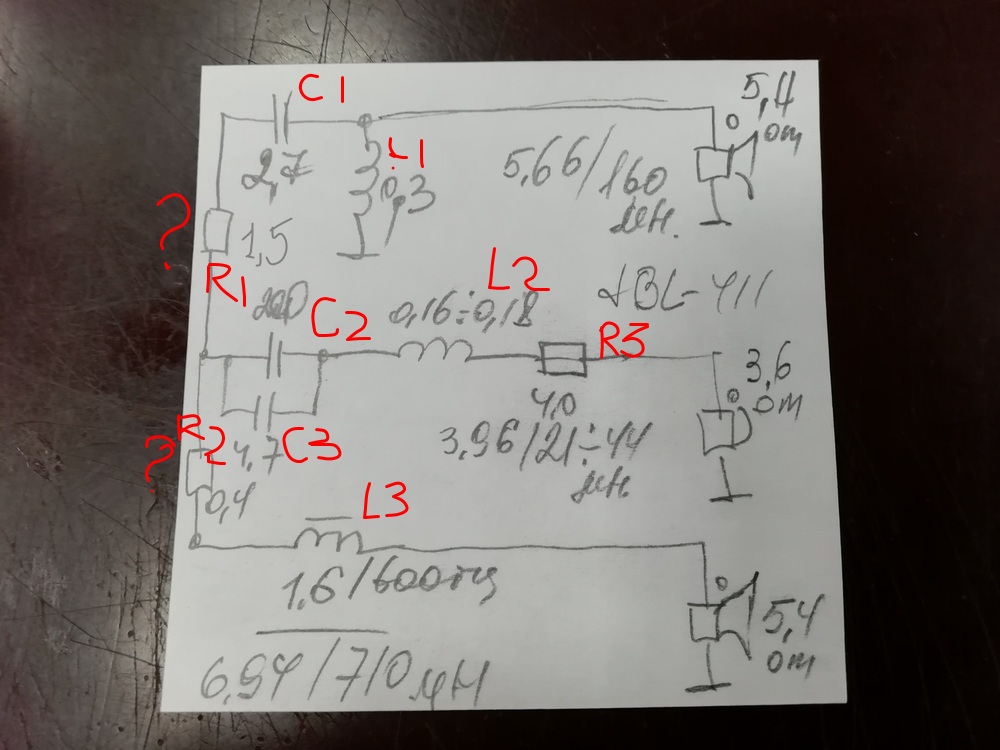 C1
5,4
ом
2,7
L1
0,3
5,66/160
мн.
?
1,5
R1
L2
JBL-411
200
C2
0,16÷0,18
R3
3,6
ом
4,0
R2
?
4,7
C3
3,96/21÷44
мн.
0,4
L3
1.6/600гц
5,4
ом
6,94/710 мН